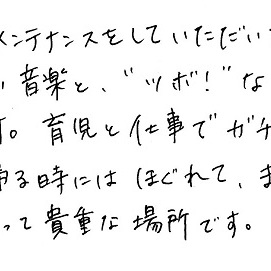 メンテナンスをしていただい
い音楽と、"ツボ!"な
す。育児と仕事でガチ
帰る時にはほぐれて、ま
って貴重な場所です。